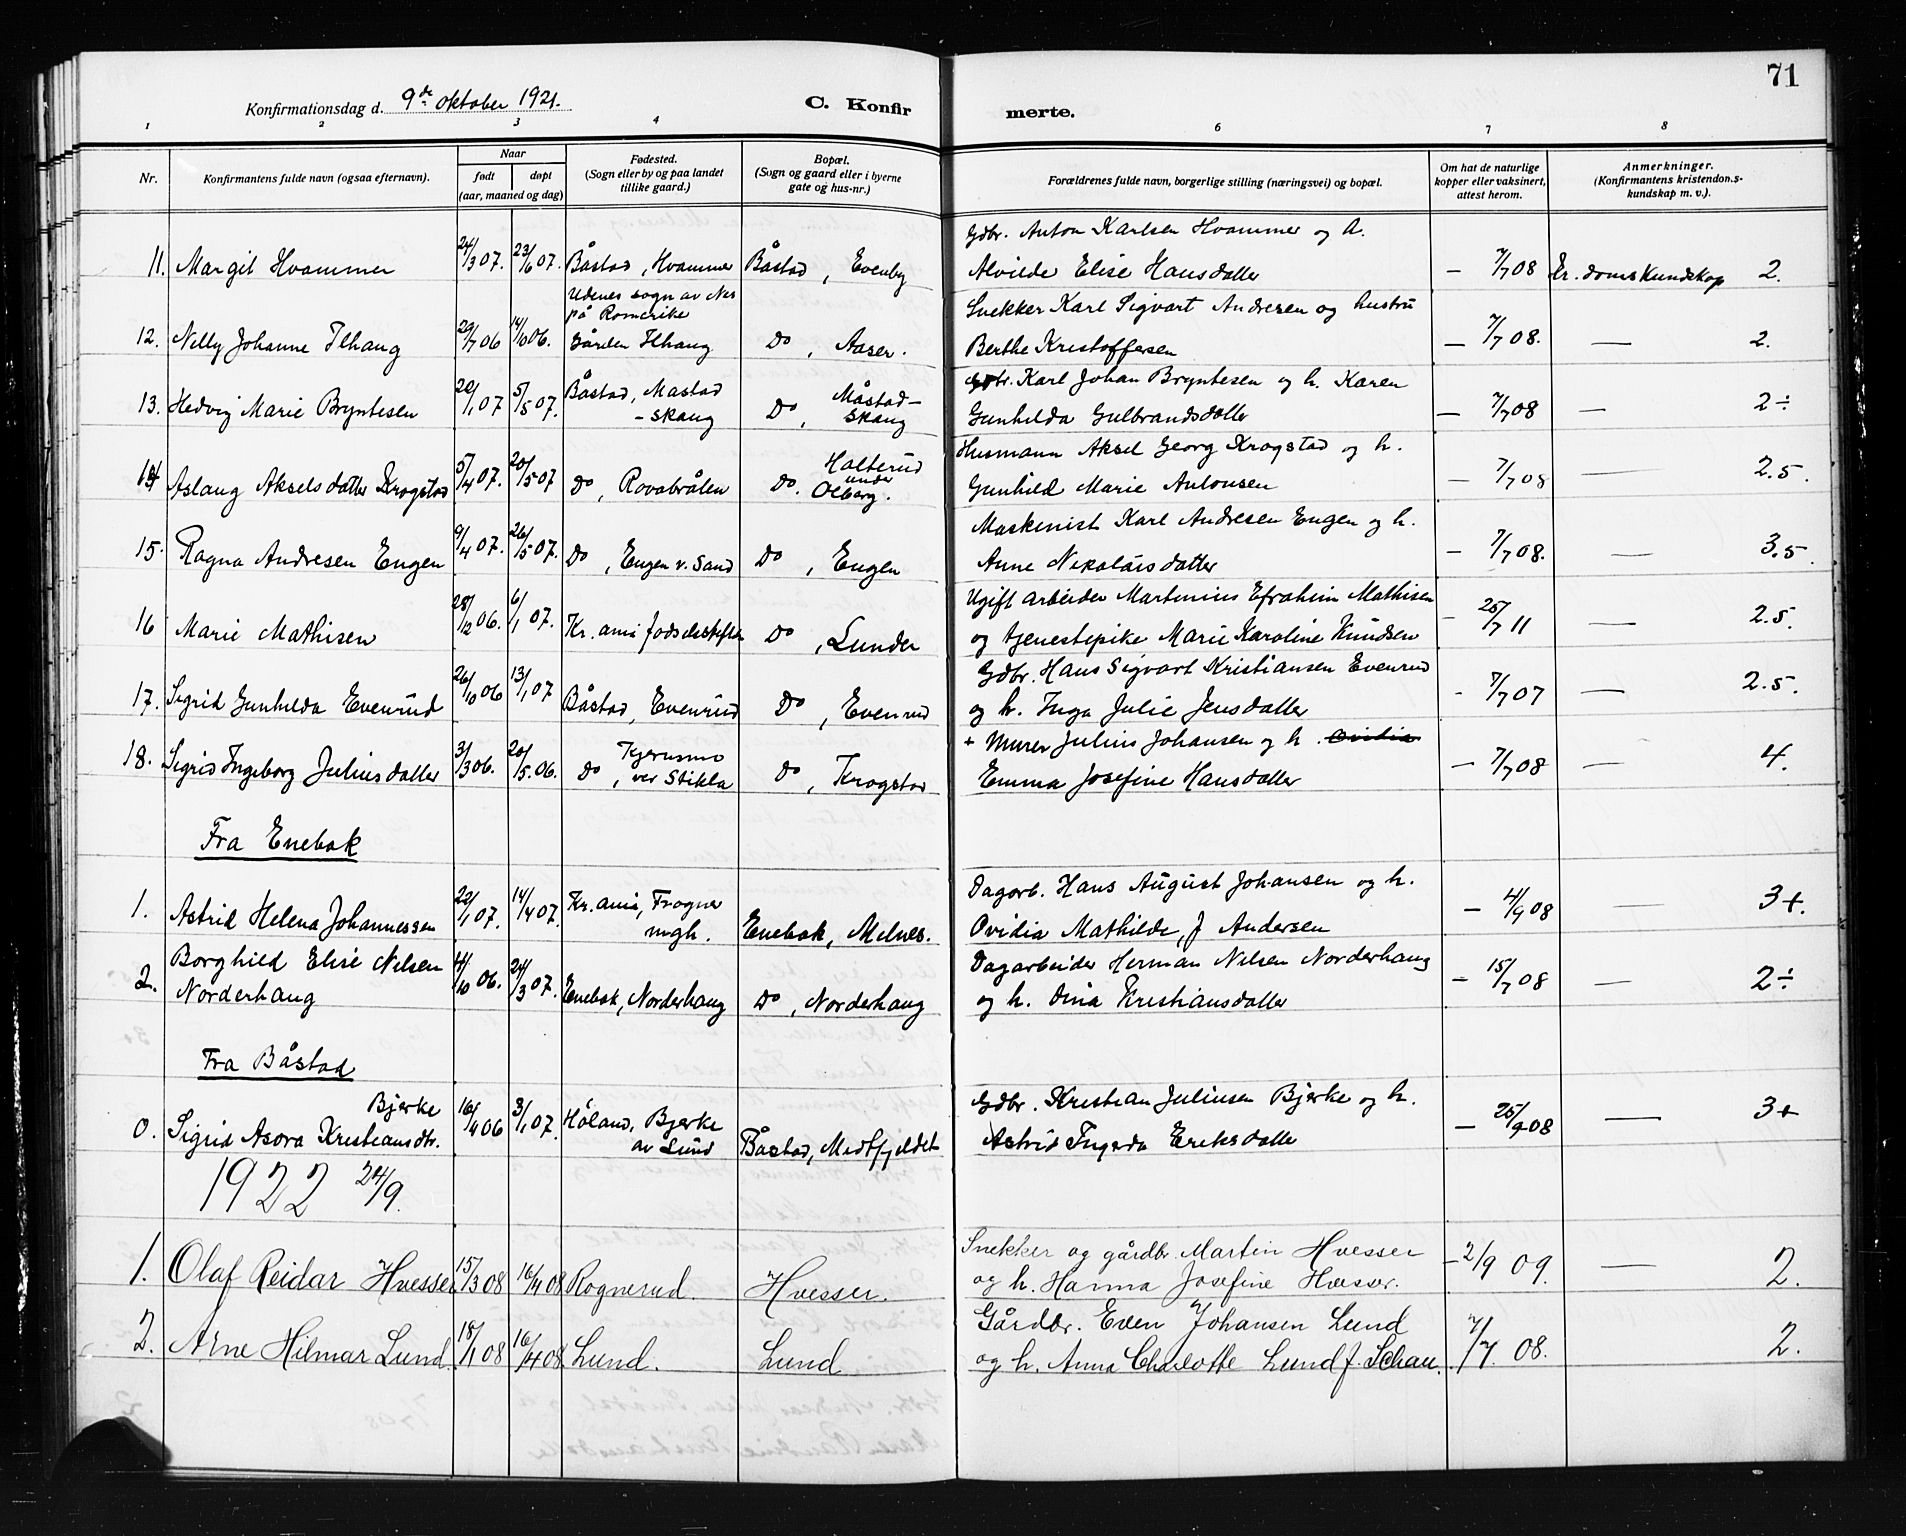 71
Konfirmationsdag d. 9de oktober 1921.
C. Konfirmerte.
1 2 3 4 6 7 8
Nr.
Konfirmantens fulde navn (ogsaa efternavn).
Naar
født døpt
(aar, maaned og dag)
Fødested.
(Sogn eller by og paa landet
tillike gaard.)
Bopæl.
(Sogn og gaard eller i byerne
gate og hus-nr.)
Forældrenes fulde navn, borgerlige stilling (næringsvei) og bopæl.
Om hat de naturlige
kopper eller vaksinert,
attest herom.
Anmerkninger.
(Konfirmantens kristendoms-
kundskap m. v.).
Gdbr. Anton Karlsen Hvammer og h.
11. Margit Hvammer 24/3 07. 23/6 07. Båstad, Hvammer Båstad, Evenby Alvilde Elise Hansdatter – 7/7 08 Kr. domskundskap 2.
Udenes sogn av Nes
på Romerike
Snekker Karl Sigvart Andresen og hustru
12. Nelly Johanne Ilhaug 29/7 06 14/10 06. Gården Ilhaug Do, Aaser. Berthe Kristoffersen – 7/7 08. — 2.
Gdbr. Karl Johan Bryntesen og h. Karen
13. Hedvig Marie Bryntesen 20/1 07 5/5 07. Båstad, Mastad
-skaug Do, Måstad-
skaug Gunhilda Gulbrandsdatter – 7/7 08 — 2÷
Husmann Aksel Georg Krogstad og h.
14 Aslaug Akselsdatter Krogstad 5/4 07. 20/5 07 Do, Rovabråten Do. Halterud
under
Olberg. Gunhild Marie Antonsen – 7/7 08 — 2.5.
Maskinist Karl Andresen Engen og h.
15. Ragna Andresen Engen 9/4 07. 26/5 07. Do, Engen v. Sand Do, Engen Anne Nikolaisdatter – 7/7 08. — 3.5
Ugift arbeider Martinius Efrahim Mathisen
16 Marie Mathisen 28/12 06. 6/1 07. Kr.ania fødselsstiftel Do, Lunder og tjenestepike Marie Karoline Knudsen – 25/7 11 — 2.5.
Gdbr. Hans Sigvart Kristiansen Evenrud
17. Sigrid Gunhilda Evenrud 26/10 06 13/1 07 Båstad, Evenrud Do, Evenrud og h. Inga Julie Jensdatter – 7/7 07 — 2.5.
+ Murer Julius Johansen og h. Ovidia
18. Sigrid Ingeborg Juliusdatter 3/3 06. 20/5. 06. Do, Kjernmo
ver Stikla Do, Krogstad Emma Josefine Hansdatter – 7/7 08 — 4.
Fra Enebak
Dagarb. Hans August Johansen og h.
1. Astrid Helena Johannessen 22/1 07. 14/4 07. Kr.ania, Frogner
mgh. Enebak, Melnes. Ovidia Mathilde, f Andersen – 4/9 08 — 3+.
Borghild Elise Nilsen Dagarbeider Herman Nilsen Norderhaug
2. Norderhaug 4/10 06. 24/3 07. Enebak, Norderhaug Do, Norderhaug og h. Dina Kristiansdatter – 15/7 08 — 2÷
Fra Båstad
Bjerke Gdbr. Kristian Juliusen Bjerke og h.
0. Sigrid Asora Kristiansdtr. 16/4 06 3/1 07. Høland, Bjerke
av Lund Båstad, Midtfjeldet Astrid Ingerda Eriksdatter – 25/9 08 — 3+
1922 24/9.
Snekker og gårdbr. Martin Hvesser
1. Olaf Reidar Hvesser 15/3 08 16/4 08 Rognerud. Hvesser. og h. Hanna Josefine Hvesser. – 2/9 09. — 2.
Gårdbr. Even Johansen Lund
2. Arne Hilmar Lund. 18/1 08 16/4 08 Lund. Lund og h. Anna Charlotte Lund f. Schau. 7/7. 08. 2.